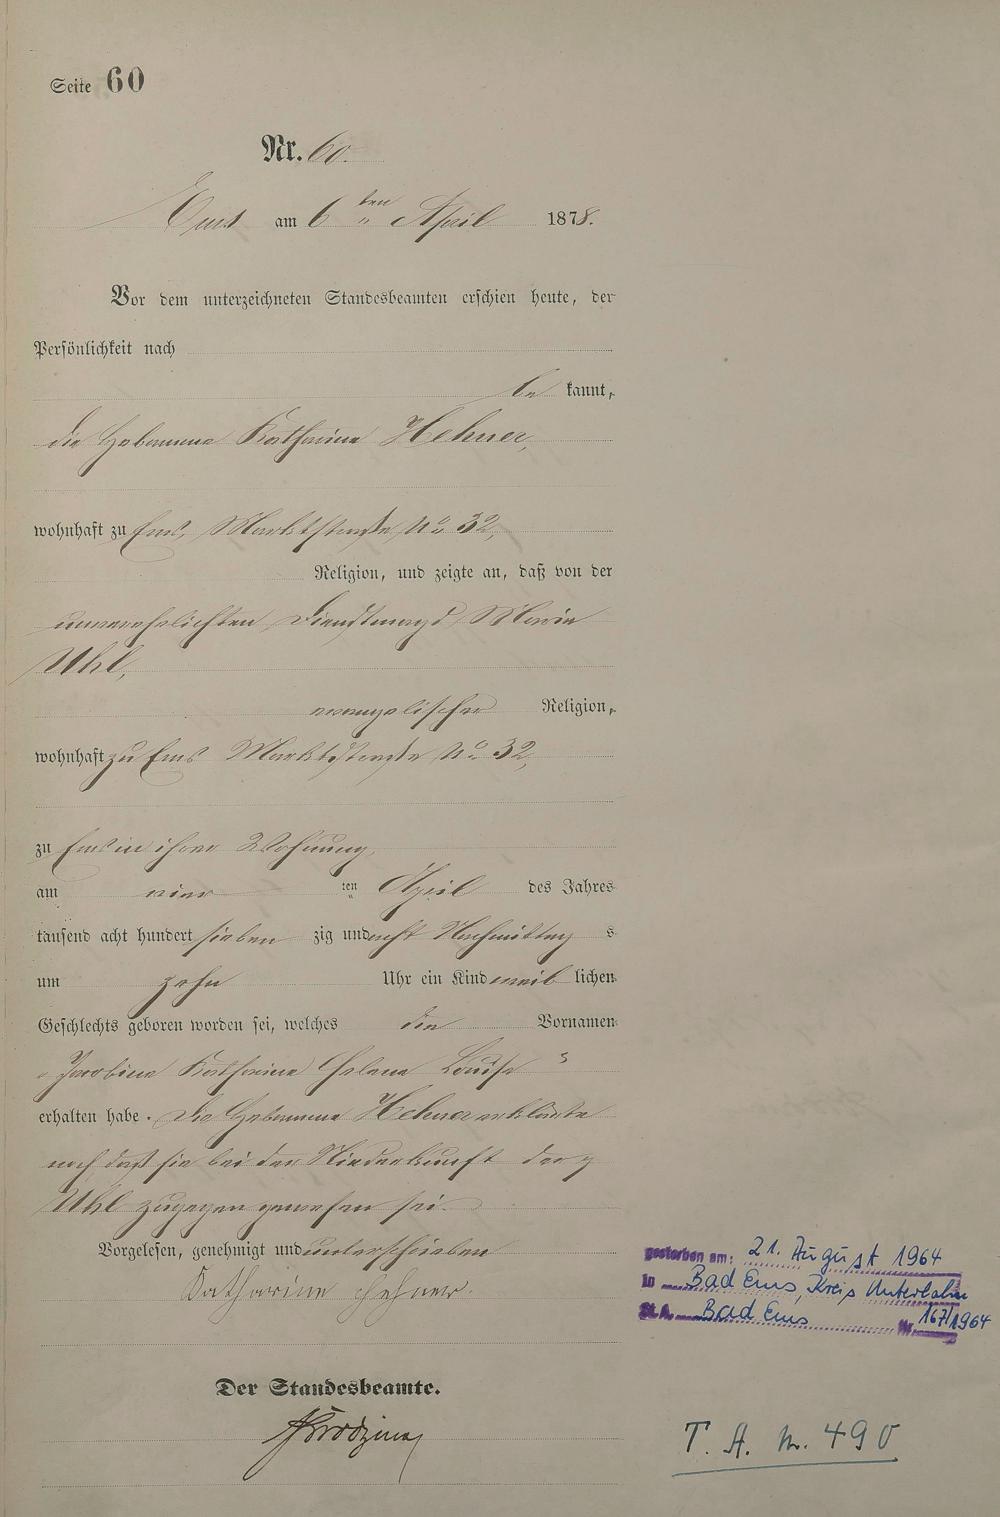 Seite 60
Nr. 60.
Ems am 6ten April 1878.
Vor dem unterzeichneten Standesbeamten erschien heute, der
Persönlichkeit nach
be kannt,
die Hebamme Katharina Hehner,
wohnhaft zu Ems, Marktstraße No 32,
Religion, und zeigte an, daß von der
unverehelichten Dienstmagd Maria
Uhl,
evangelischer Religion,
wohnhaft zu Ems Marktstraße No 32,
zu Ems in ihrer Wohnung,
am vier ten April des Jahres
tausend acht hundert sieben zig und acht Nachmittag s
um zehn Uhr ein Kind weib lichen
Geschlechts geboren worden sei, welches die Vornamen
„Jacobine Katharina Helena Louise“
erhalten habe. Die Hebamme Hehner erklärte
noch daß sie bei der Niederkunft der
Uhl zugegen gewesen sei.
Vorgelesen, genehmigt und unterschrieben
Katharina Hehner.
Der Standesbeamte.
gestorben am: 21. August 1964
in Bad Ems, Kreis Unterlahn
St.A. Bad Ems Nr. 167/1964
T. A. Nr. 490